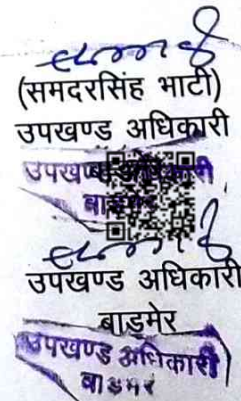 (समदरसिंह भाटी)
उपखण्ड अधिकारी
उपखण्ड अधिकारी
बाड़मेर
उपखण्ड अधिकारी
बाड़मेर
उपखण्ड अधिकारी
बाड़मेर